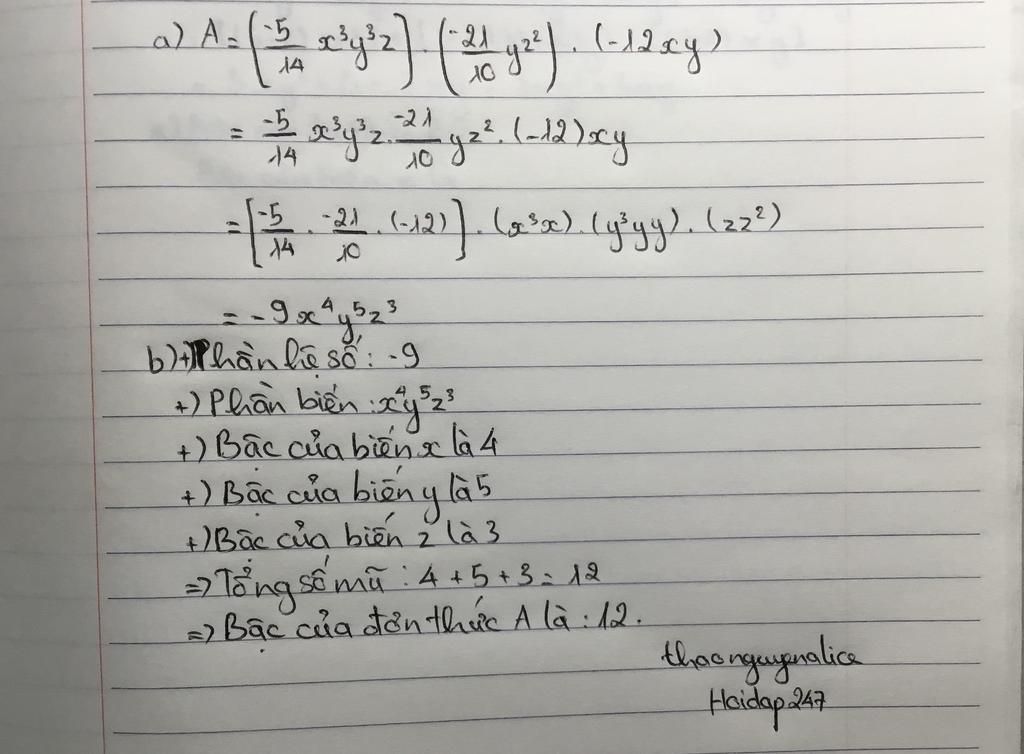 a) A = (-5/14 x³y³z) . (-21/10 yz²) . (-12xy)
= -5/14 x³y³z . -21/10 yz² . (-12)xy
= [-5/14 . -21/10 . (-12)] . (x³x) . (y³yy) . (zz²)
= -9x⁴y⁵z³
b) +) Phần hệ số : -9
+) Phần biến : x⁴y⁵z³
+) Bậc của biến x là 4
+) Bậc của biến y là 5
+) Bậc của biến z là 3
=> Tổng số mũ : 4 + 5 + 3 = 12
=> Bậc của đơn thức A là : 12.
thaonguyenalice
Hoidap247